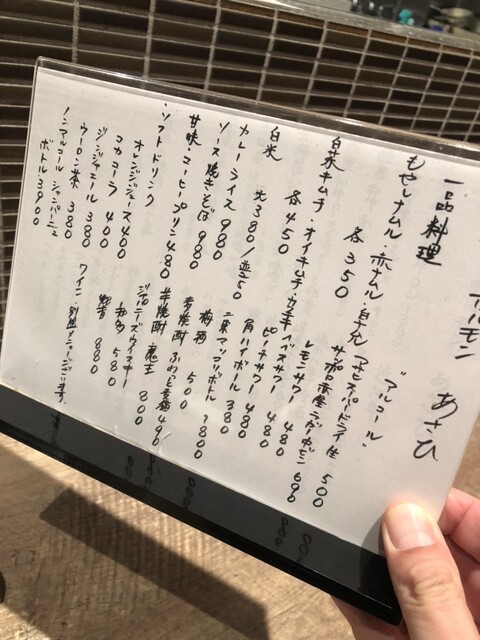 ホルモン あさひ
一品料理
もやしナムル・赤ナムル・白ナムル
各350
白菜キムチ・オイキムチ・カクテキ
各450
白米
大380/並350
カレーライス 980
ソース焼きそば 980
甘味・コーヒープリン 480
・ソフトドリンク
オレンジジュース 400
コカコーラ 400
ジンジャエール 380
ウーロン茶 380
ノンアルコール シャンパーニュ
ボトル 3900
"アルコール"
アサヒスーパードライ生 500
サッポロ赤星ラガー中ビン 690
レモンサワー 480
カボスサワー 480
ピーチサワー 480
角ハイボール 380
二東マッコリボトル 1800
梅酒 500
芋焼酎 魔王 800
ジャパニーズウイスキー
知多 580
響 880
ワイン・別途メニューございます。